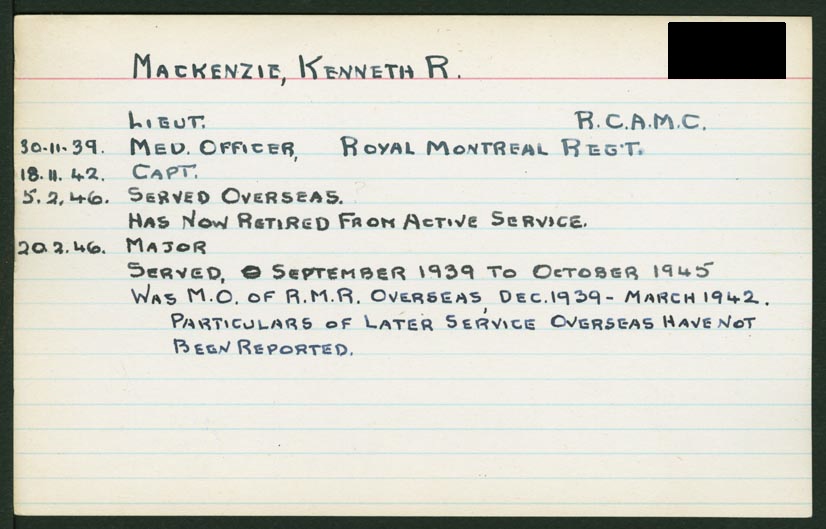 MACKENZIE, KENNETH R.
LIEUT. R.C.A.M.C.
30.11.39. MED. OFFICER, ROYAL MONTREAL REG'T.
18.11.42. CAPT.
5.2.46. SERVED OVERSEAS.
HAS NOW RETIRED FROM ACTIVE SERVICE.
20.2.46. MAJOR
SERVED, SEPTEMBER 1939 TO OCTOBER 1945
WAS M.O. OF R.M.R. OVERSEAS, DEC. 1939 - MARCH 1942.
PARTICULARS OF LATER SERVICE OVERSEAS HAVE NOT
BEEN REPORTED.